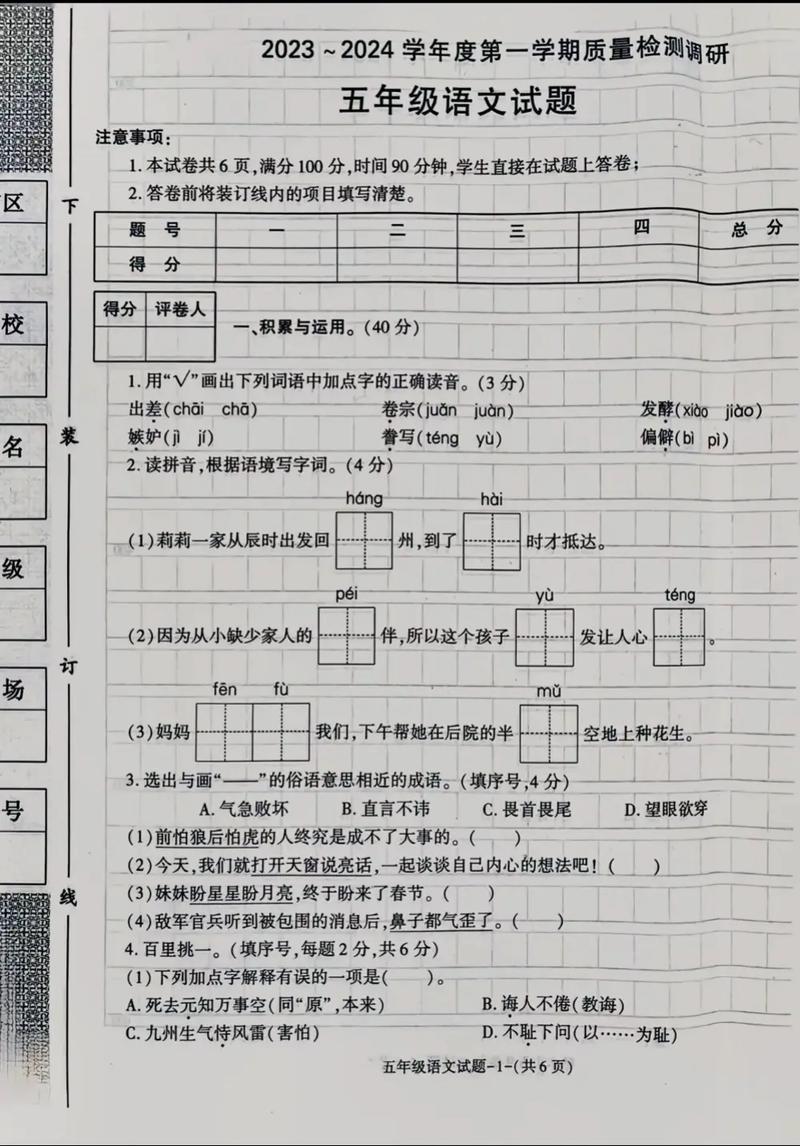 2023～2024学年度第一学期质量检测调研
五年级语文试题
注意事项:
1.本试卷共6页,满分100分,时间90分钟,学生直接在试题上答卷;
2.答卷前将装订线内的项目填写清楚。
题 号 一 二 三 四 总 分
得 分
得分 评卷人
一、积累与运用。(40分)
1.用“√”画出下列词语中加点字的正确读音。(3分)
出差(chāi chā) 卷宗(juǎn juàn) 发酵(xiào jiào)
嫉妒(jì jí) 誊写(téng yù) 偏僻(bì pì)
2.读拼音,根据语境写字词。(4分)
háng hài
(1)莉莉一家从辰时出发回 州,到了 时才抵达。
péi yù téng
(2)因为从小缺少家人的 伴,所以这个孩子 发让人心 。
fēn fù mǔ
(3)妈妈 我们,下午帮她在后院的半 空地上种花生。
3.选出与画“——”的俗语意思相近的成语。(填序号,4分)
A.气急败坏 B.直言不讳 C.畏首畏尾 D.望眼欲穿
(1)前怕狼后怕虎的人终究是成不了大事的。( )
(2)今天,我们就打开天窗说亮话,一起谈谈自己内心的想法吧！( )
(3)妹妹盼星星盼月亮,终于盼来了春节。( )
(4)敌军官兵听到被包围的消息后,鼻子都气歪了。( )
4.百里挑一。(填序号,每题2分,共6分)
(1)下列加点字解释有误的一项是( )。
A.死去元知万事空(同“原”,本来) B.诲人不倦(教诲)
C.九州生气恃风雷(害怕) D.不耻下问(以……为耻)
五年级语文试题-1-(共6页)
区
校
名
级
场
号
下
装
订
线